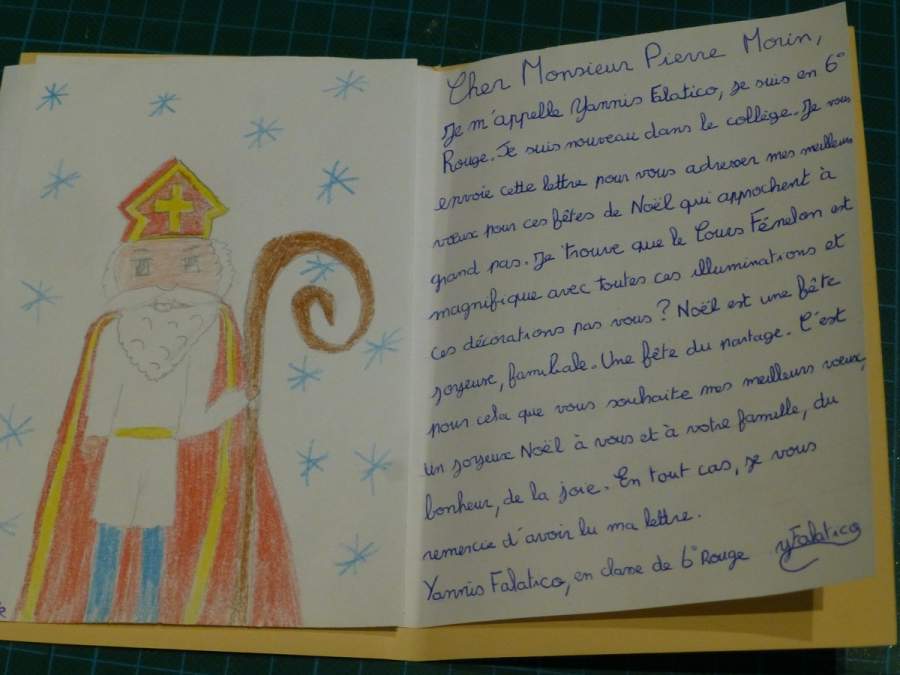 Cher Monsieur Pierre Morin,
Je m'appelle Yannis Falatico, je suis en 6°
Rouge. Je suis nouveau dans le collège. Je vous
envoie cette lettre pour vous adresser mes meilleurs
vœux pour ces fêtes de Noël qui approchent à
grand pas. Je trouve que le Cours Fénelon est
magnifique avec toutes ces illuminations et
ces décorations pas vous? Noël est une fête
joyeuse, familiale. Une fête du partage. C'est
pour cela que vous souhaite mes meilleurs vœux,
un joyeux Noël à vous et à votre famille, du
bonheur, de la joie. En tout cas, je vous
remercie d'avoir lu ma lettre.
Yannis Falatico, en classe de 6° Rouge yFalatico